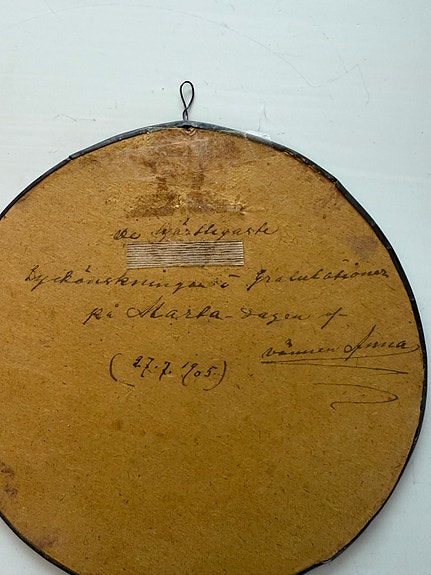 De hjärtligaste
Lyckönskningar & Gratulationer
på Marta-dagen af
vännen Anna
(27.7.1905)